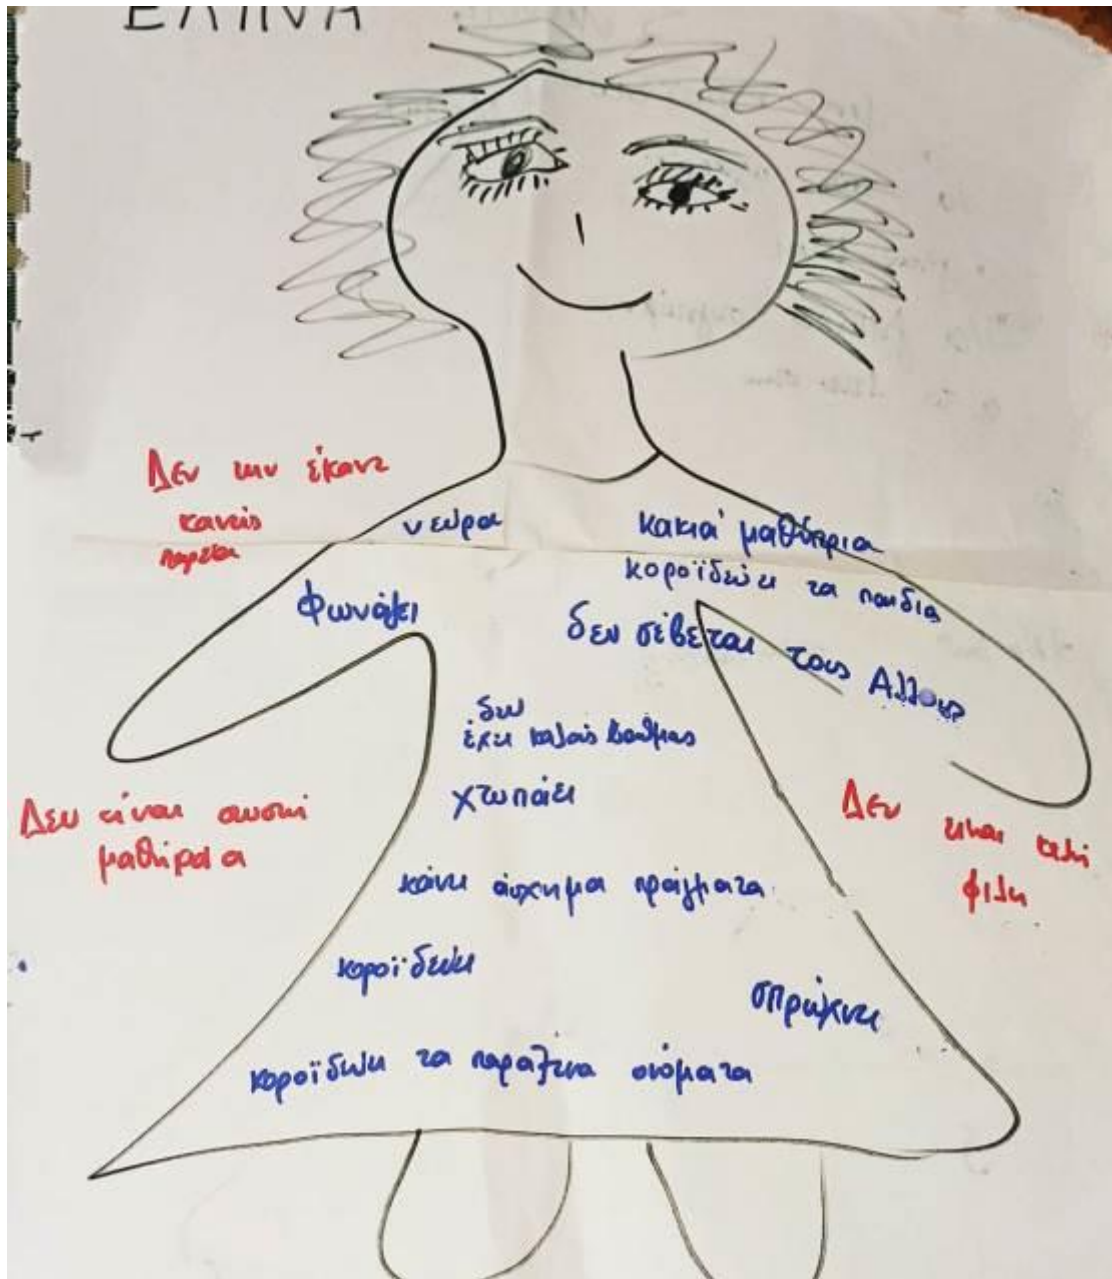 ΕΛΙΝΑ
Δεν την έκανε
κανείς
παρέα
νεύρα
κακιά μαθήτρια
κοροϊδεύει τα παιδια
Φωνάζει
δεν σέβεται τους Αλλους
δεν
έχει καλούς βαθμους
χτυπάει
Δεν είναι σωστή
μαθήτρια
Δεν ειναι καλή
φιλη
κάνει άσχημα πράγματα
κοροϊδεύει
σπρώχνει
κοροϊδεύει τα παραξενα ονόματα